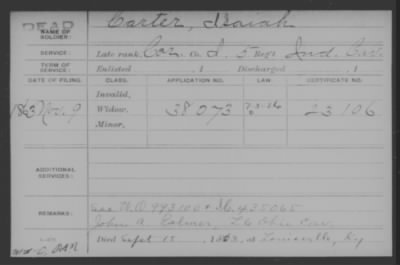 DEAD
NAME OF SOLDIER: Carter, Isaiah
SERVICE: Late rank, Cor. Co. I, 5 Reg't Ind. Cav.
TERM OF SERVICE: Enlisted , 1 Discharged , 1
DATE OF FILING. CLASS. APPLICATION NO. LAW. CERTIFICATE NO.
Invalid,
1863 Nov. 9 Widow, 38073 23106
Minor,
ADDITIONAL SERVICES:
REMARKS: See W.O. 993100 & 435065
John A. Ohio Cav.
Died Sept 15, 1863, at Louisville, Ky